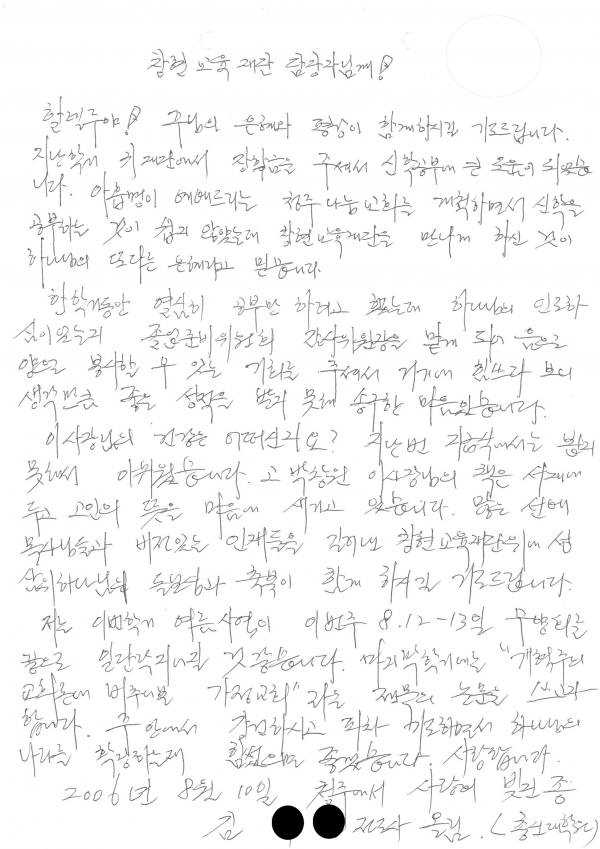 참현 교육 재단 담당자님께!
할렐루야! 주님의 은혜와 평강이 함께하시길 기도드립니다.
지난학기 귀 재단에서 장학금을 주셔서 신학공부에 큰 도움이 되었습
니다. 아홉명이 예배드리는 청주 나눔교회를 개척하면서 신학을
공부하는 것이 쉽지 않았는데 참현교육재단을 만나게 하신 것이
하나님의 또다른 은혜라고 믿습니다.
한학기동안 열심히 공부만 하려고 했는데 하나님의 인도하
심이었는지 졸업준비위원회 감사위원장을 맡게 되어 음으로
양으로 봉사할 수 있는 기회를 주셔서 거기에 힘쓰다 보니
생각만큼 좋은 성적을 받지 못해 송구한 마음있습니다.
이사장님의 건강은 어떠신지요? 지난번 뵙지
못해서 아쉬웠습니다. 고 박 이사장님의 책은 서재에
두고 고인의 뜻을 마음에 새기고 있습니다. 많은 선배
목사님들과 비전있는 인재들을 길러낸 참현교육재단위에 성
삼위하나님의 돌보심과 축복이 함께 하시길 기도드립니다.
저는 이번학기 여름사역이 이번주 8.12-13일 부흥회를
끝으로 일단락되어질 것 같습니다. 마지막학기에는 "개혁주의
교회론에 비추어본 가정교회"라는 제목의 논문을 쓰고자
합니다. 주 안에서 강건하시고 피차 기도하면서 하나님의
나라를 확장하는데 힘썼으면 좋겠습니다. 사랑합니다.
2006년 8월 10일 청주에서 사랑에 빚진 종
김 전도사 올림. (총신대학원)